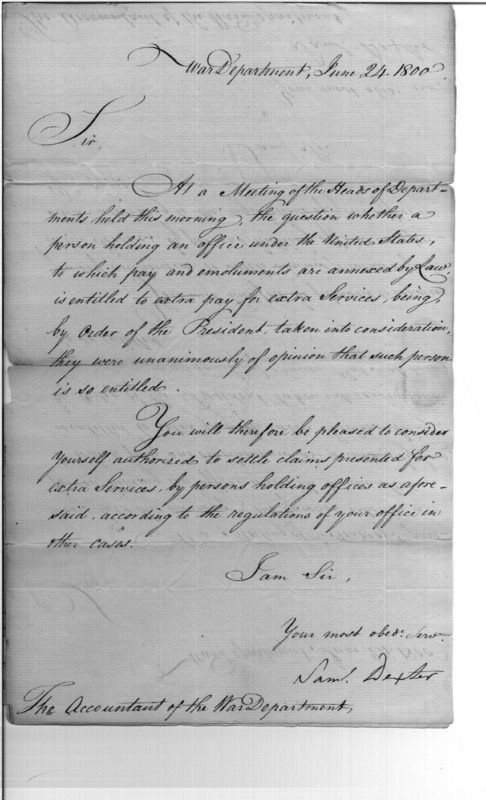 War Department, June 24. 1800.
Sir,
At a Meeting of the Heads of Depart-
ments held this morning, the question whether a
person holding an office under the United States,
to which pay and emoluments are annexed by Law,
is entitled to extra pay for extra Services, being,
by order of the President, taken into consideration,
they were unanimously of opinion that such person
is so entitled.
You will therefore be pleased to consider
yourself authorized to settle claims presented for
extra Services, by persons holding offices as afore-
said, according to the regulations of your office in
other cases.
I am Sir,
Your most obedt. Servt.
Saml. Dexter
The Accountant of the War Department,